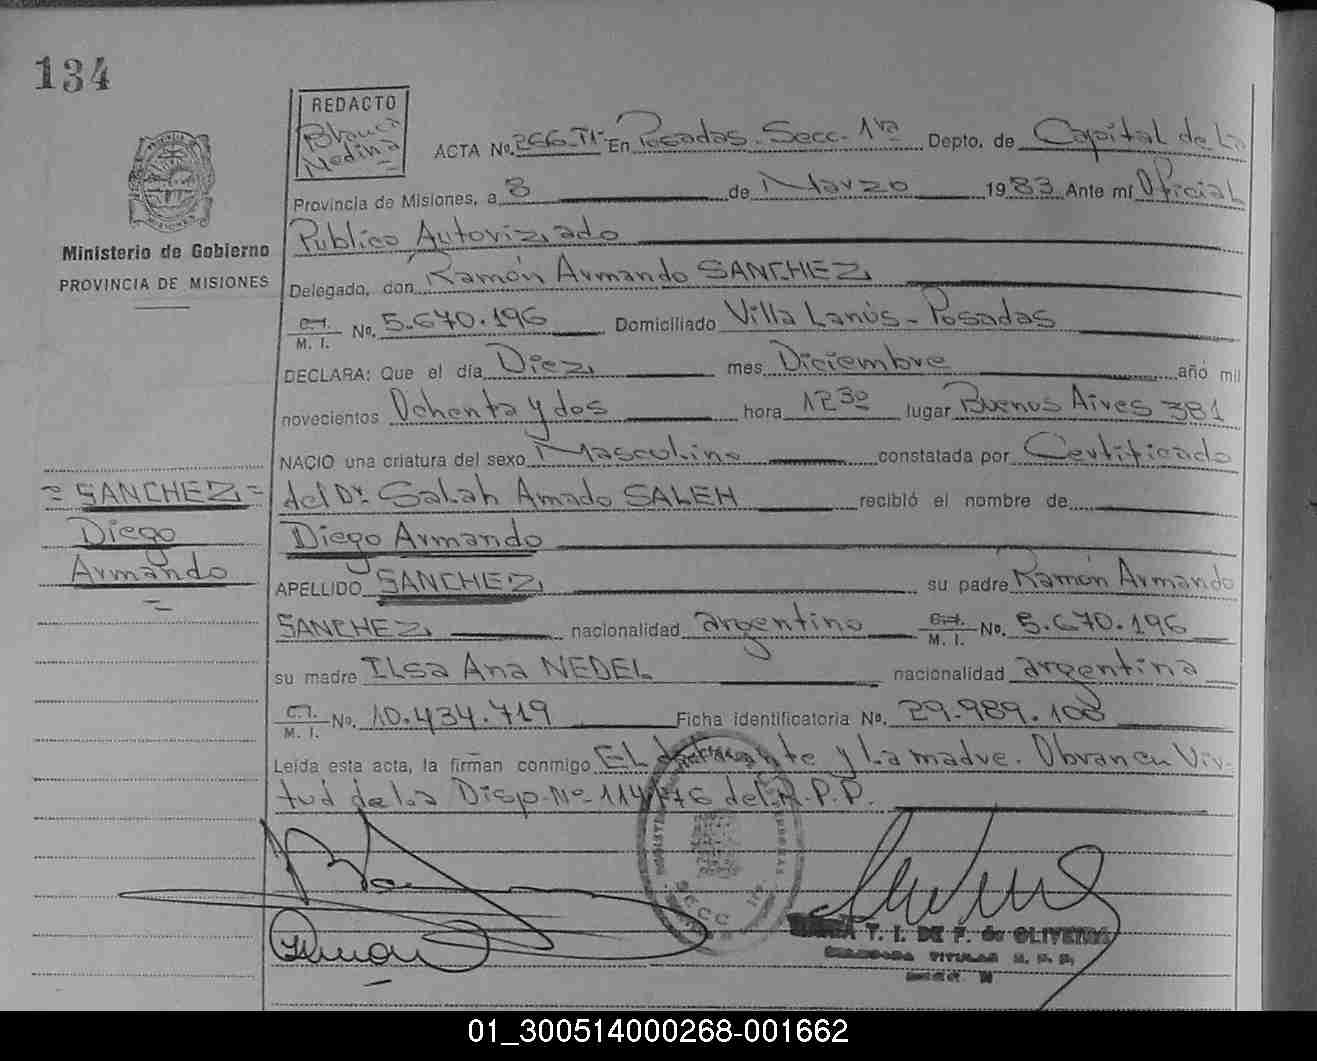 134
REDACTO
Blanca
Medina
ACTA No. 266-TI- En Posadas- Secc- 1ra Depto. de Capital de la
Provincia de Misiones, a 8 de Marzo 1983 Ante mí Oficial
Publico Autorizado
Ministerio de Gobierno
PROVINCIA DE MISIONES
Delegado, don Ramón Armando SANCHEZ
C.I. M. I. No. 5.670.196 Domiciliado Villa Lanús- Posadas
DECLARA: Que el día Diez mes Diciembre año mil
novecientos Ochenta y dos hora 12 30 lugar Buenos Aires 381
NACIO una criatura del sexo Masculino constatada por Certificado
del Dr. Salah Amado SALEH recibió el nombre de
Diego Armando
= SANCHEZ =
Diego
Armando
APELLIDO SANCHEZ su padre Ramón Armando
SANCHEZ nacionalidad argentino C.I. M. I. No. 5.670.196
su madre Ilsa Ana NEDEL nacionalidad argentina
C.I. M. I. No. 10.434.719 Ficha identificatoria No. 29.989.108
Leída esta acta, la firman conmigo El declarante y la madre. Obran en Vir-
tud de la Disp. Nº 114/76 del R.P.P.
SECC 1ra
MARIA T. I. DE F. de OLIVEIRA
TITULAR R. P. P.
01_300514000268-001662